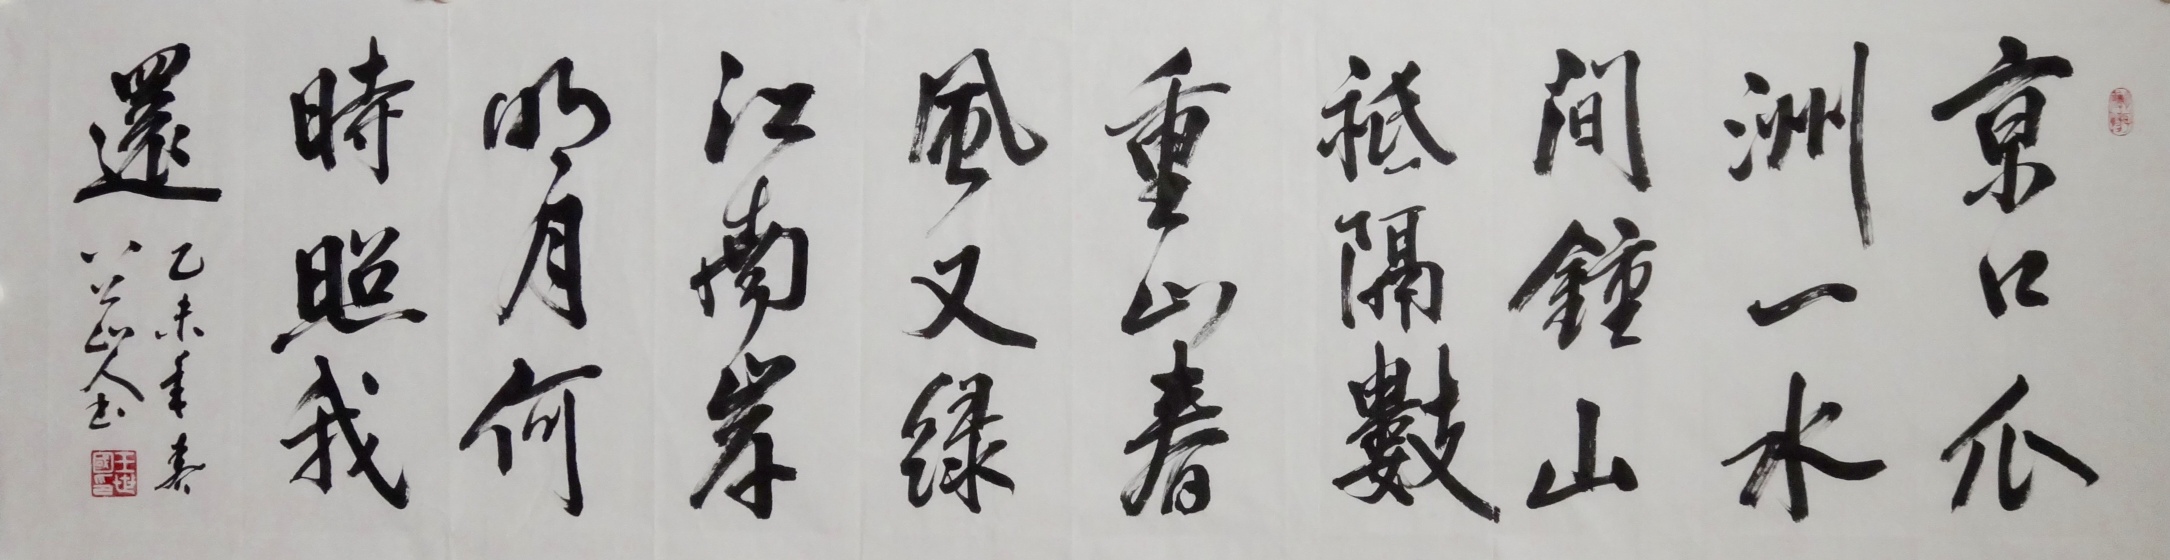 京口瓜
洲一水
间鍾山
祗隔數
重山春
風又緑
江南岸
明月何
時照我
還
乙未年春
八公山人書
王世國印